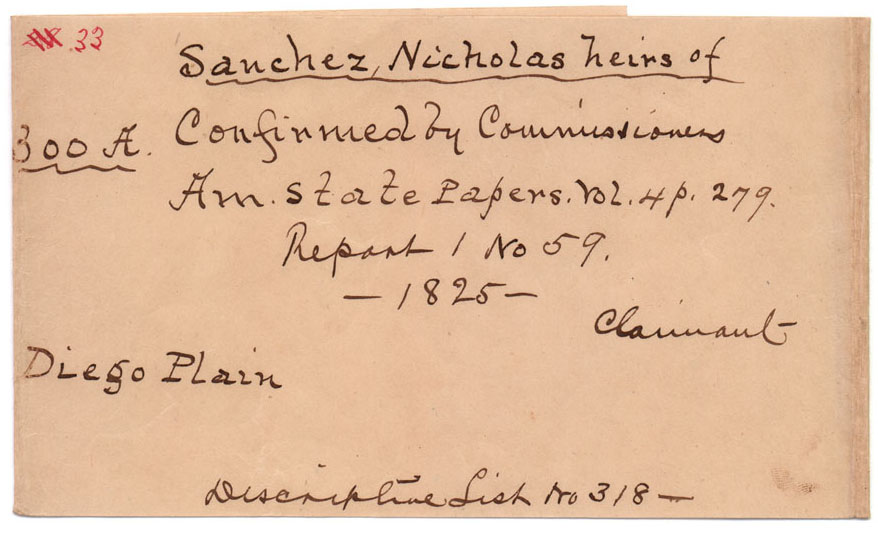 33
Sanchez, Nicholas heirs of
300 A. Confirmed by Commissioners
Am. State Papers. Vol. 4 p. 279.
Report 1 No 59.
— 1825 —
Claimant
Diego Plain
Descriptive List No 318 —